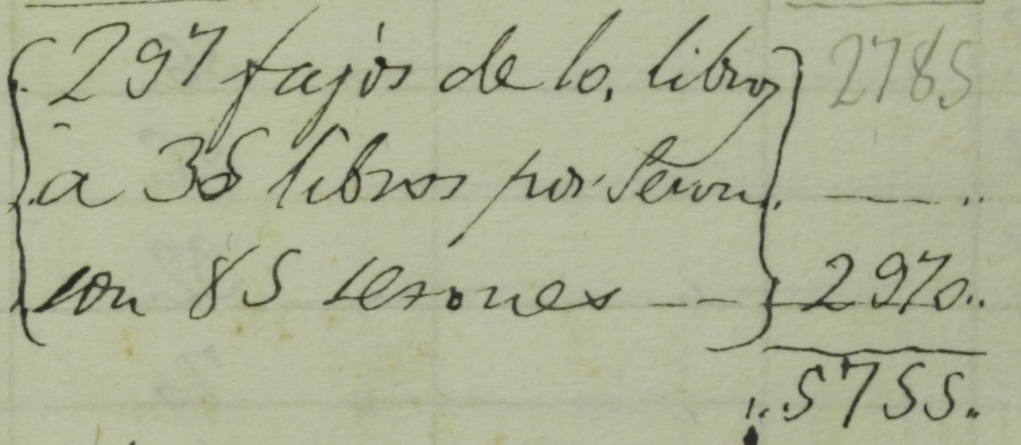 297 fajos de lo, libros 2785
a 35 libros por Seron. — ..
son 85 serones -- 2970..
5755.